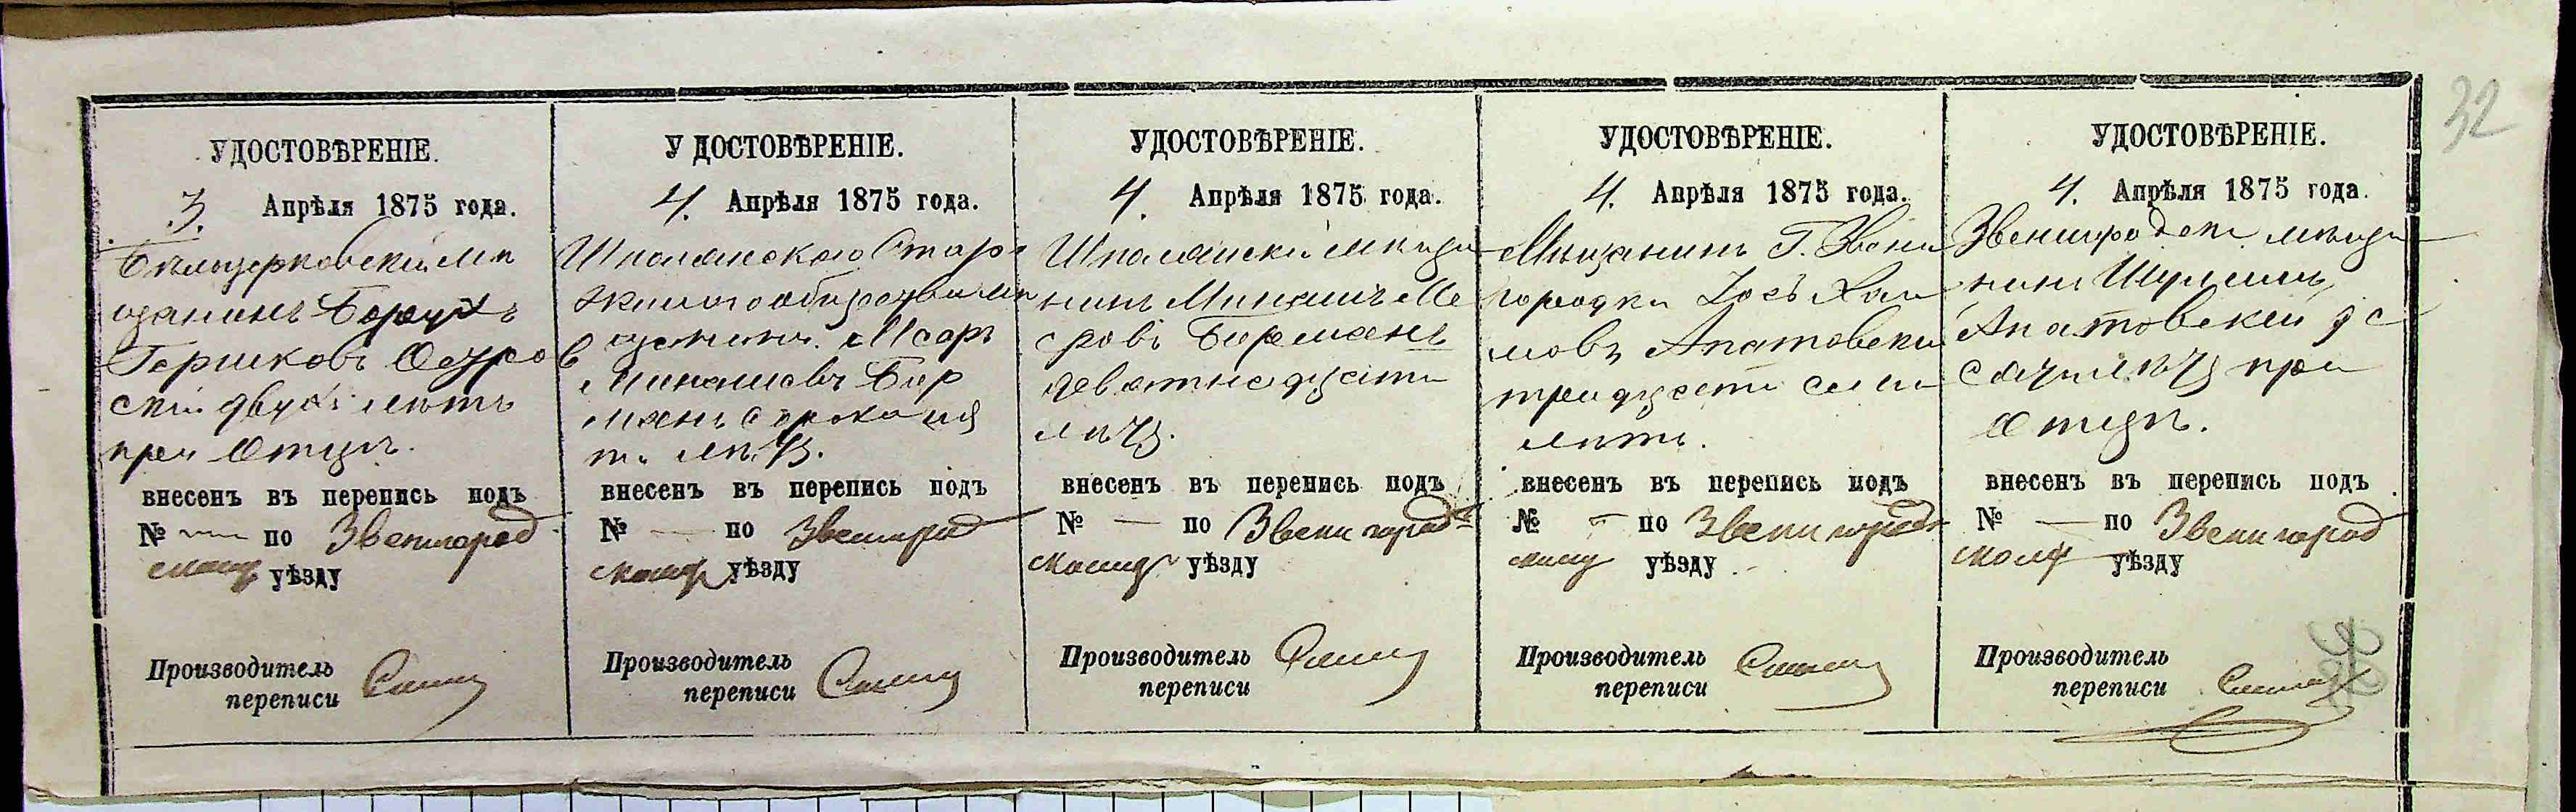 32
УДОСТОВѢРЕНІЕ.
3. Апрѣля 1875 года.
Бѣлоцерковскій мѣ
щанинъ Борухъ
Гершковъ Остро
скій двухъ лѣтъ
при Отцѣ.
внесенъ въ перепись подъ
№ — по Звенигород
скому уѣзду
Производитель
переписи
УДОСТОВѢРЕНІЕ.
4. Апрѣля 1875 года.
Шполянскаго Стар
мѣ
щанинъ
Бир
манъ сорока пя
ти лѣтъ.
внесенъ въ перепись подъ
№ — по Звенигород
скому уѣзду
Производитель
переписи
УДОСТОВѢРЕНІЕ.
4. Апрѣля 1875 года.
Шполянскій мѣща
нинъ
Бирманъ
девятнадцати
лѣтъ.
внесенъ въ перепись подъ
№ — по Звенигород
скому уѣзду
Производитель
переписи
УДОСТОВѢРЕНІЕ.
4. Апрѣля 1875 года.
Мѣщанинъ Г. Звени
городки Іосъ Хаи
мовъ Апатовскій
тридцати семи
лѣтъ.
внесенъ въ перепись подъ
№ — по Звенигород
скому уѣзду
Производитель
переписи
УДОСТОВѢРЕНІЕ.
4. Апрѣля 1875 года.
Звенигородскі мѣща
нинъ Шулимъ
Апатовскій
при
Отцѣ.
внесенъ въ перепись подъ
№ — по Звенигород
скому уѣзду
Производитель
переписи